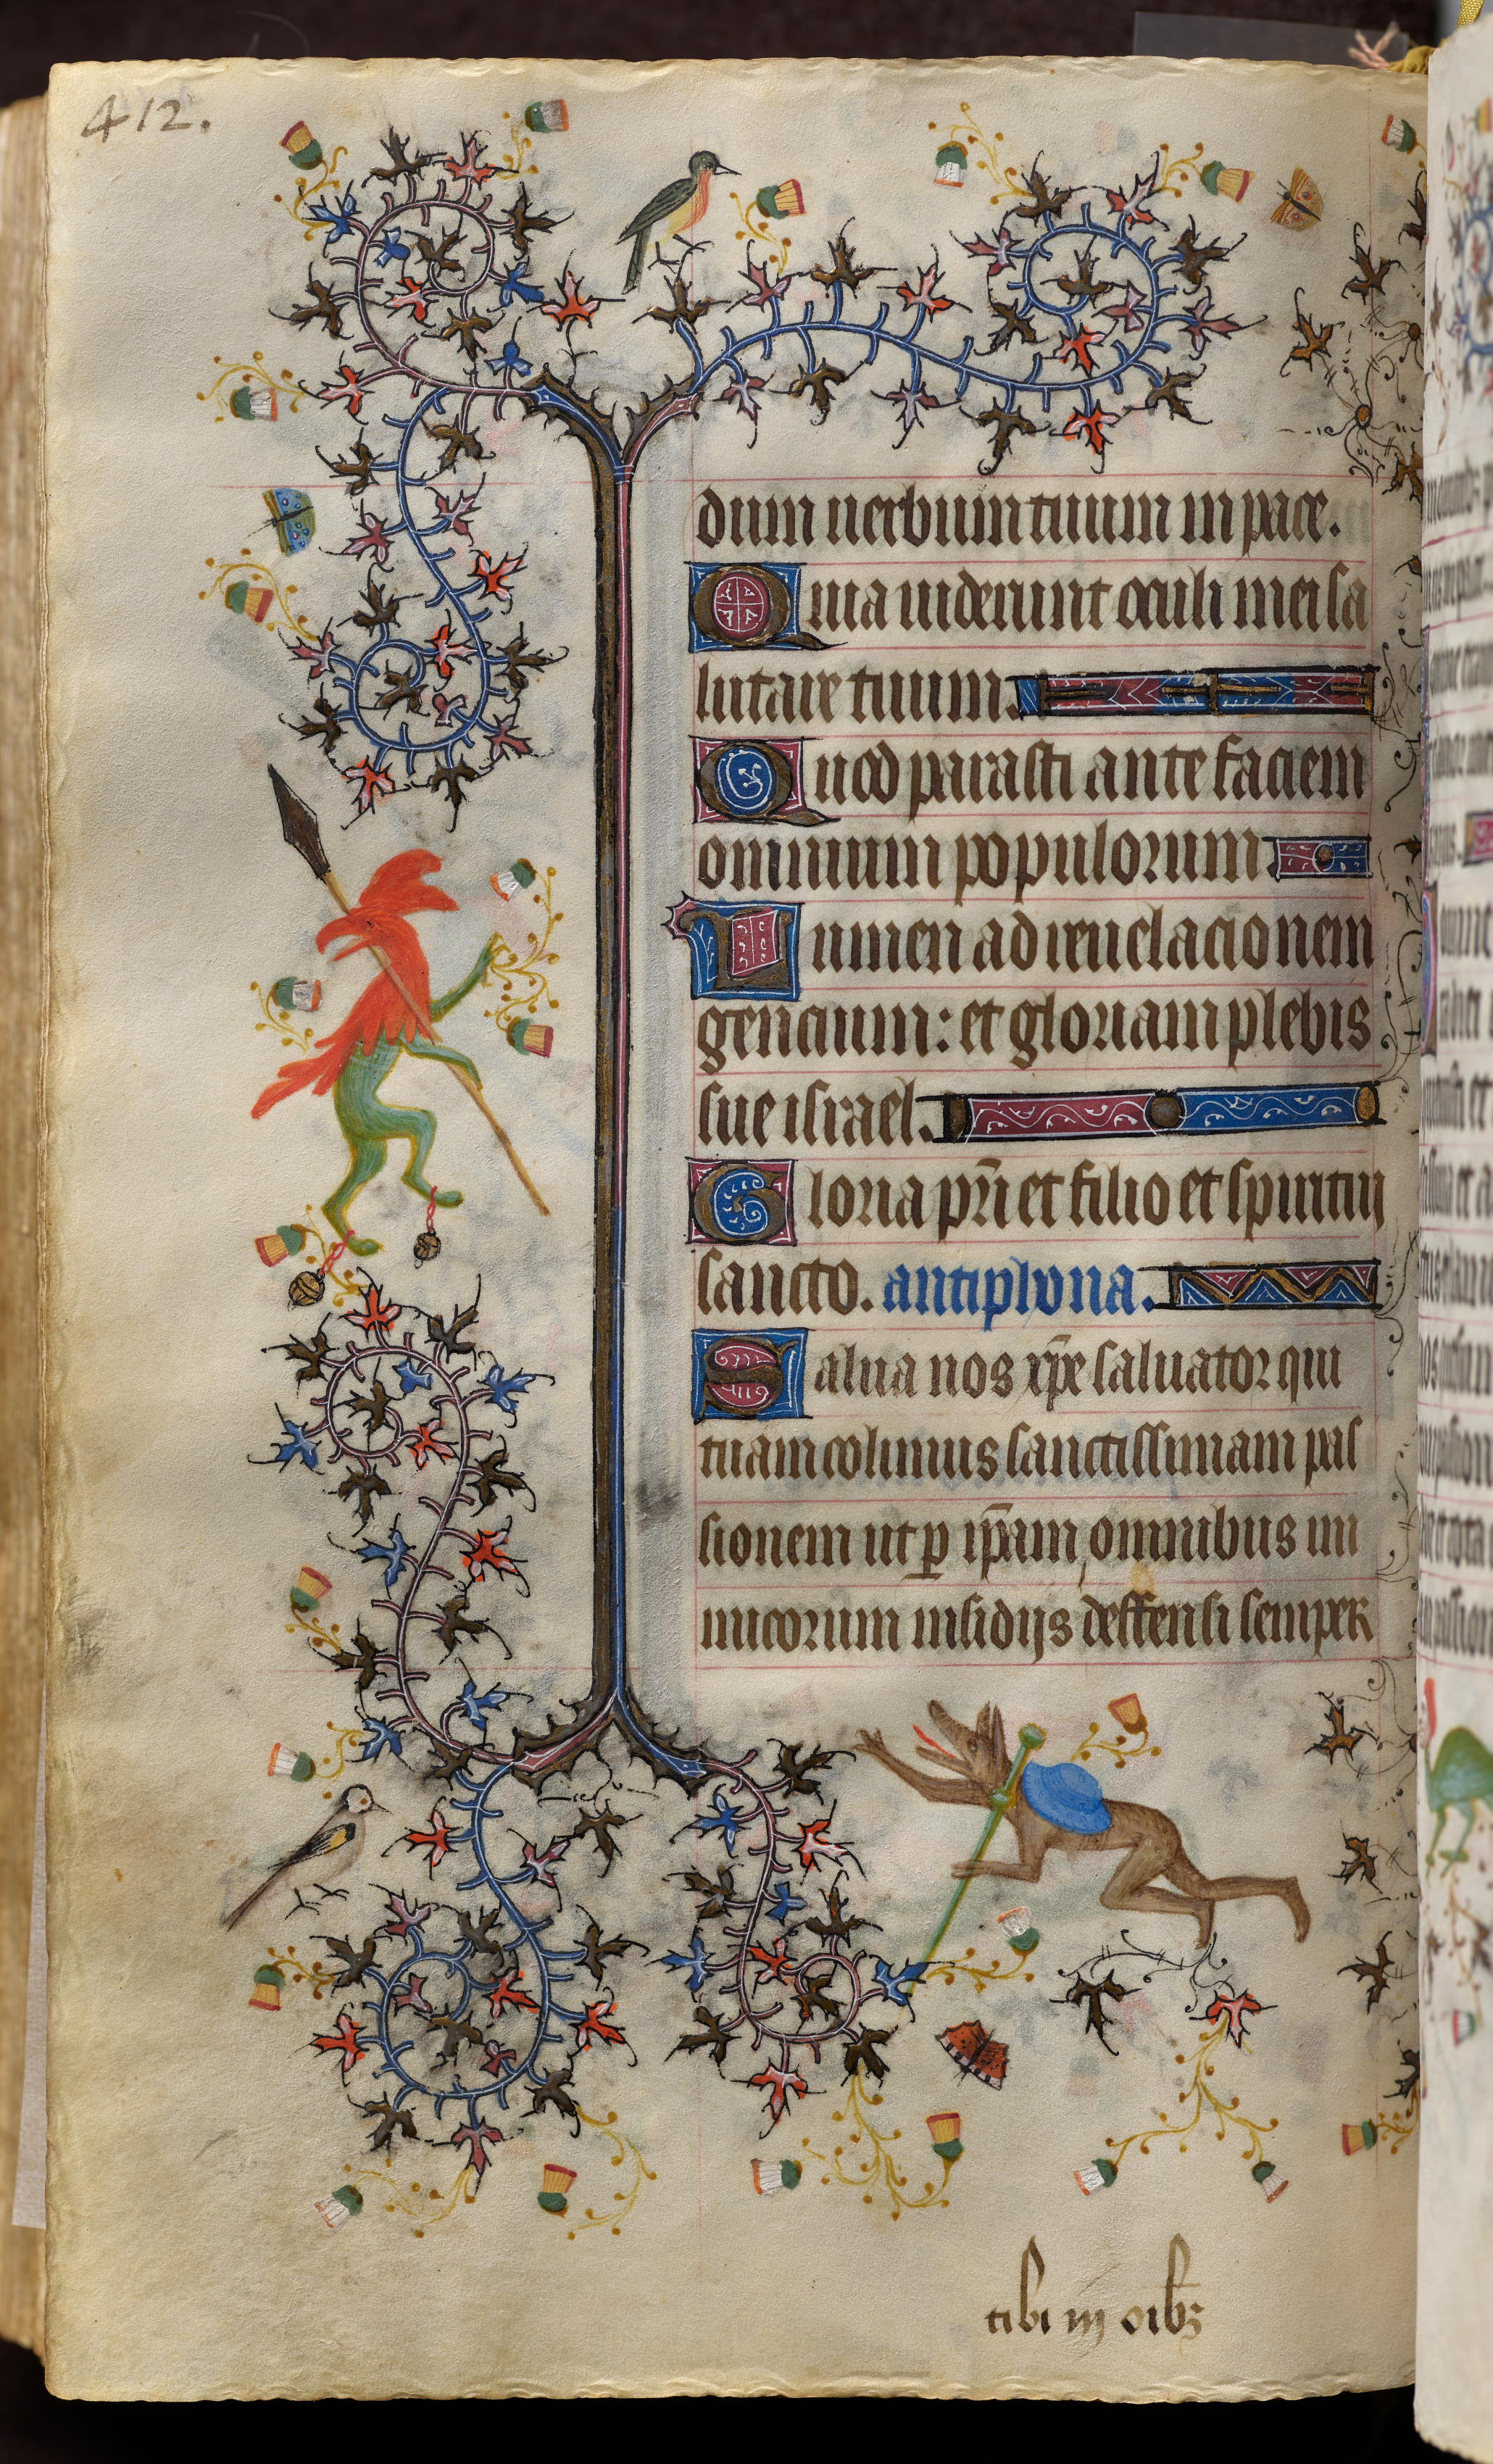 412.
dum uerbum tuum in pace.
Quia uiderunt oculi mei sa
lutare tuum.
Quod parasti ante faciem
omnium populorum
Lumen ad reuelacionem
gencium: et gloriam plebis
sue israel.
Gloria pr̃i et filio et spiritui
sancto. antiphona.
Salua nos xp̄e saluator qui
tuam colimus sanctissimam pas
sionem ut ꝑ ip̄am omnibus ini
micorum insidijs deffensi semper
tibi in oībꝫ